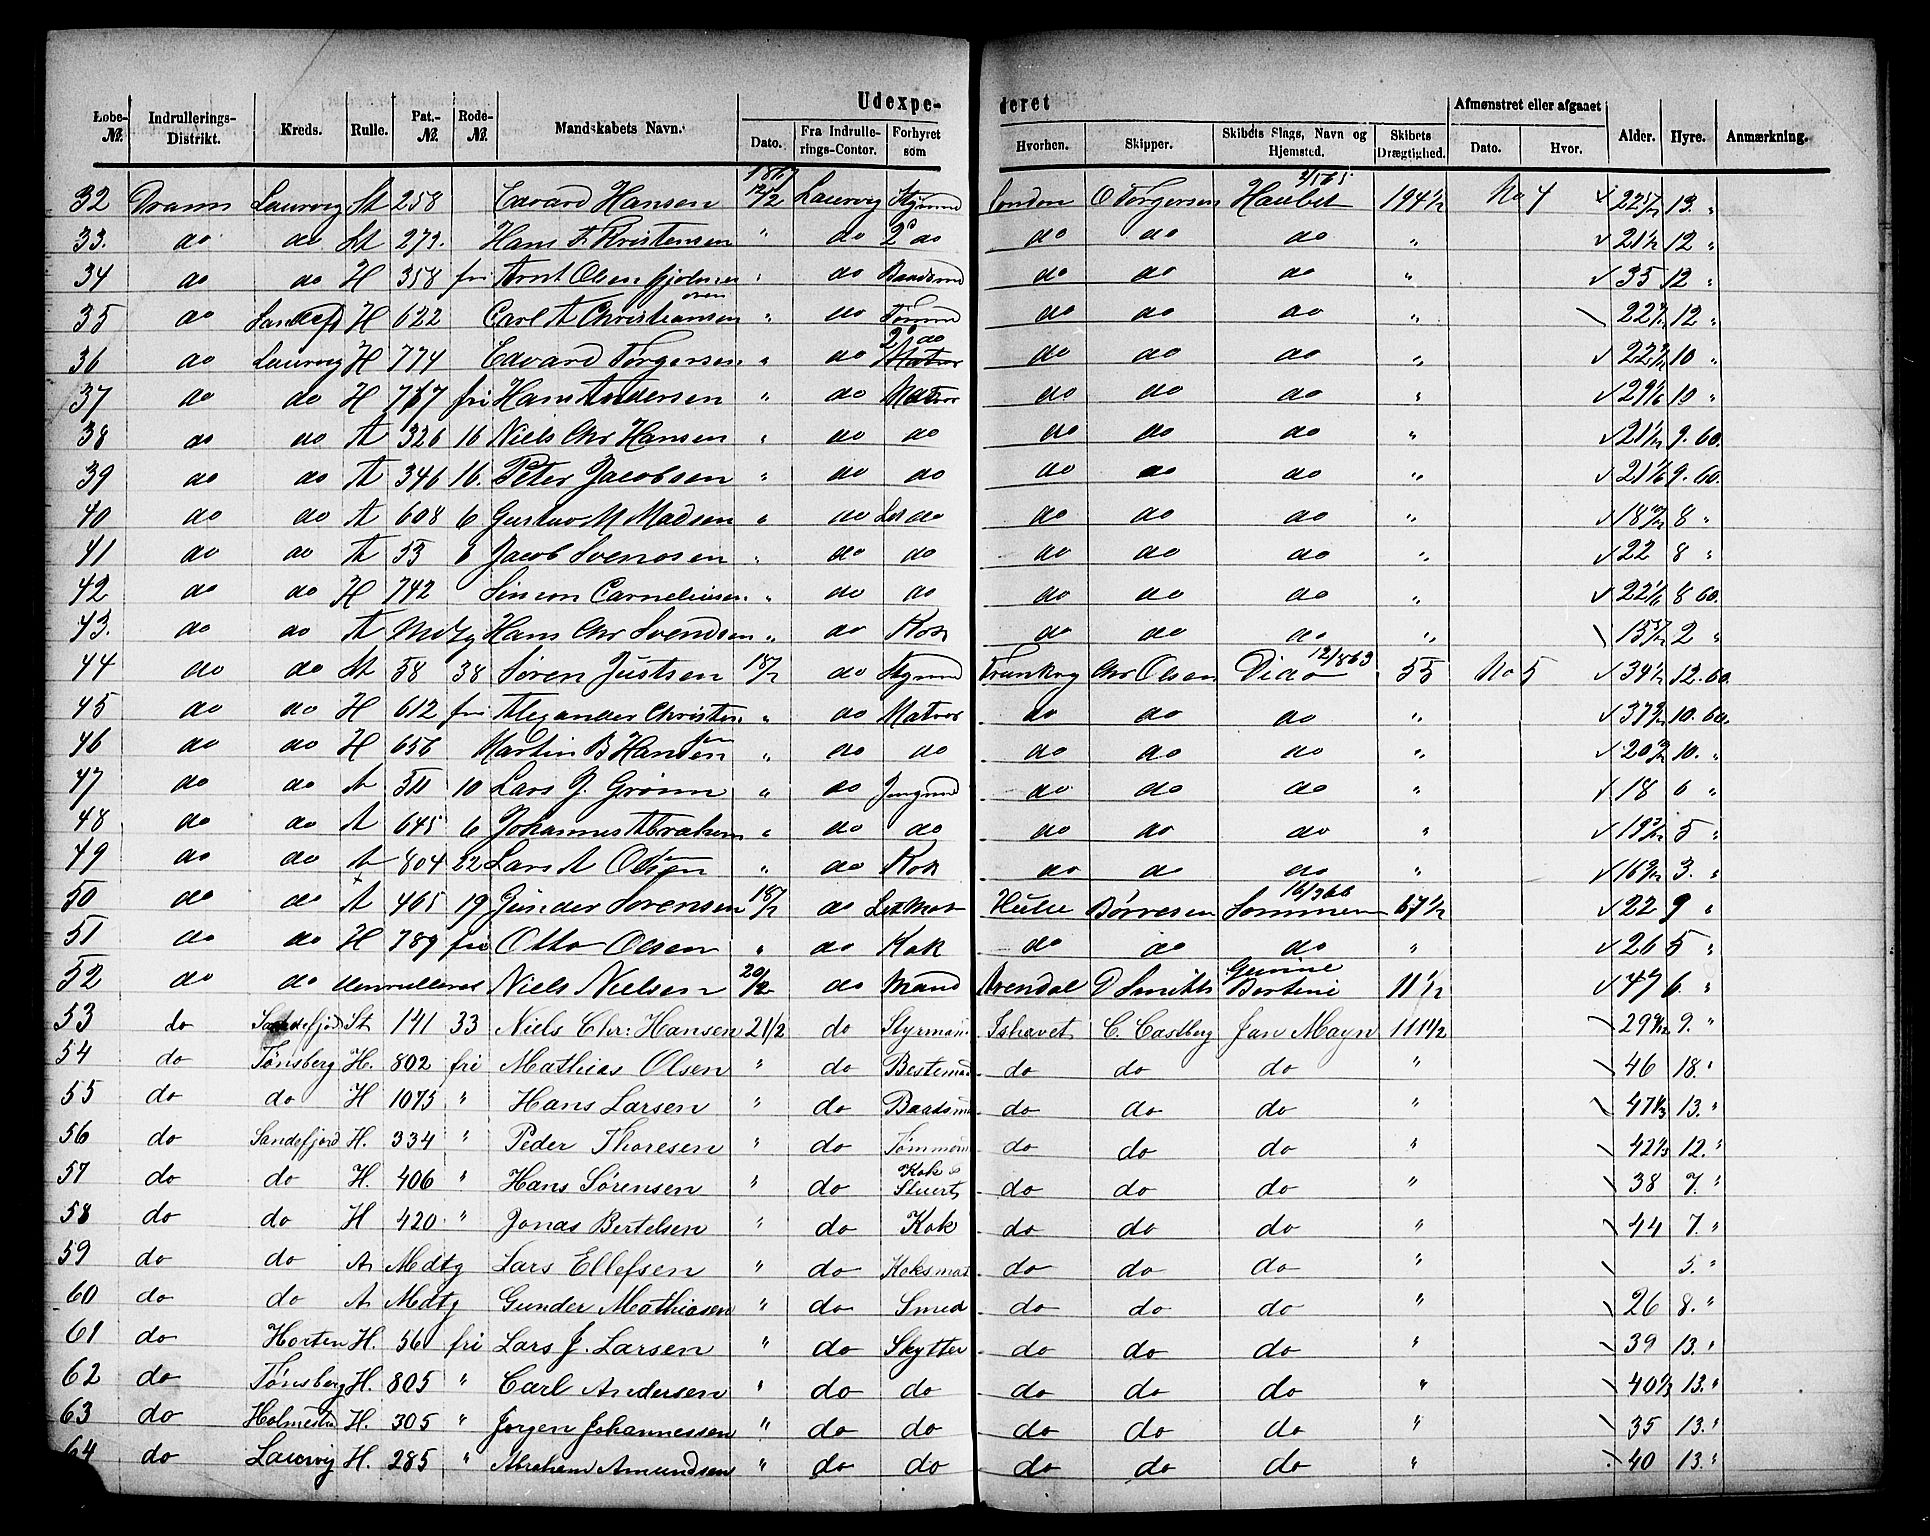 Udexpederet
Løbe-№. Indrullerings-Distrikt. Kreds. Rulle. Pat.-№. Rode-№. Mandskabets Navn. Dato. Fra Indrullerings-Contor. Forhyret som Hvorhen. Skipper. Skibets Slags, Navn og Hjemsted. Skibets Drægtighed. Afmønstret eller afgaaet Dato. Hvor. Alder. Hyre. Anmærkning.
32 Dram Laurvig St 258 Edvard Hansen 1867 12/2 Laurvig Stymd London O Torgersen Haabet 194½ No 4 22 5/12 13 "
33. do do St 279. Hans A Kristensen " do 2den do do do do " 21½ 12 "
34 do do H 358 fri Arnt Olsen " do Baadsmd do do do " 35 12 "
35 do Sandefjd H 622 Carl A Christiansen " do Tømmd do do do " 12 "
36 do Laurvig H 774 Edvard Torgersen " do 2d do do do do " 10 "
37 do do H 767 fri Hans Andersen " do Matros do do do " 29 1/6 10 "
38 do do A 326 16 Niels Chr Hansen " do do do do do " 21 1/12 9. 60.
39 do do A 346 16. Peter Jacobsen " do do do do do " 21 1/6 9. 60.
40 do do A 608 6 Gustav M Madsen " do Let do do do do " 8 "
41 do do A 53 6 Jacob Svendsen " do do do do do " 22 8 "
42 do do H 742 Simon Corneliusen " do do do do do " 22 1/6 8 60.
43. do do A Mdtg Hans Chr Svendsen " do Kok do do do " 15 5/12 2 "
44 do do St 58 38 Søren Justsen 18/2 do Stymd Frankrig Chr Olsen Dido 55 No 5 34½ 12. 60.
45 do do H 612 fri Alexander Christensen " do Matros do do do " 10. 60.
46 do do H 656 Martin B Hansen " do do do do do " 10. "
47 do do A 511 10 Lars J. Grønn " do Jungmd do do do " 18 6 "
48 do do A 645 6 Johannes Abrahamsen " do do do do do " 5 "
49 do do A 804 22 Lars A Olsen " do Kok do do do " 3. "
50 do do A 465 19 Gunder Sørensen 18/2 do Let Mat Hull Børresen Sommeren 67½ 22 9 "
51 do do H 789 fri Otto Olsen " do Kok do do do " 26 5 "
52 do do Uenrulleret Niels Nielsen 20/2 do Mand Arendal D Smith Gurine Bertine 11½ 47 6 "
53 do Sandefjord St 141 33 Niels Chr: Hansen 21/2 do Styrmand Ishavet C. Castberg Jan Mayn 111½ 9. "
54 do Tønsberg H. 802 fri Mathias Olsen " do Bestemd do do do " 46 18. "
55 do do H 1075 " Hans Larsen " do Baadsmd do do do " 47 1/3 13. "
56 do Sandefjord H. 334 " Peder Thoresen " do Tømmerm do do do " 42 1/3 12. "
57 do do H. 406 " Hans Sørensen " do Kok & Stuert do do do " 38 7. "
58 do do H 420 " Jonas Bertelsen " do Kok do do do " 44 7. "
59 do do A Mdtg Lars Ellefsen " do Koksmat do do do " 5. "
60 do do A Mdtg Gunder Mathiasen " do Smed do do do " 26 8. "
61 do Horten H. 56 fri Lars J. Larsen " do Skytter do do do " 39 13. "
62 do Tønsberg H. 805 " Carl Andersen " do do do do do " 40 1/3 13. "
63 do Holmestrd H. 305 " Jørgen Johannessen " do do do do do " 35 13. "
64 do Laurvig H. 285 " Abraham Amundsen " do do do do do " 40 13. "